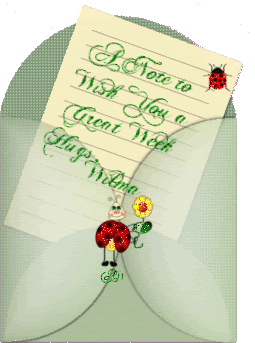 A Note to
Wish You a
Great Week
Hugs,
Wilma